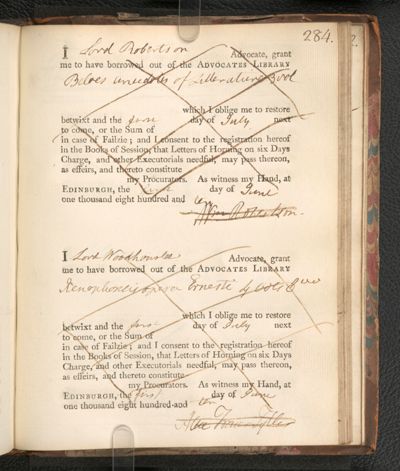 284.
I Lord Robertson Advocate, grant
me to have borrowed out of the ADVOCATES LIBRARY
Beloes anecdotes of Litterature
which I oblige me to restore
betwixt and the first day of July next
to come, or the Sum of
in case of Failzie; and I consent to the registration hereof
in the Books of Session, that Letters of Horning on six Days
Charge, and other Executorials needful, may pass thereon,
as effeirs, and thereto constitute
my Procurators. As witness my Hand, at
EDINBURGH, the first day of June
one thousand eight hundred and ten
Wm Robertson.
I Lord Woodhouslee Advocate, grant
me to have borrowed out of the ADVOCATES LIBRARY
Xenophontis opera Ernesti 4 vols 8vo
which I oblige me to restore
betwixt and the first day of July next
to come, or the Sum of
in case of Failzie; and I consent to the registration hereof
in the Books of Session, that Letters of Horning on six Days
Charge, and other Executorials needful, may pass thereon,
as effeirs, and thereto constitute
my Procurators. As witness my Hand, at
EDINBURGH, the first day of June
one thousand eight hundred and ten
Alex Fraser Tytler